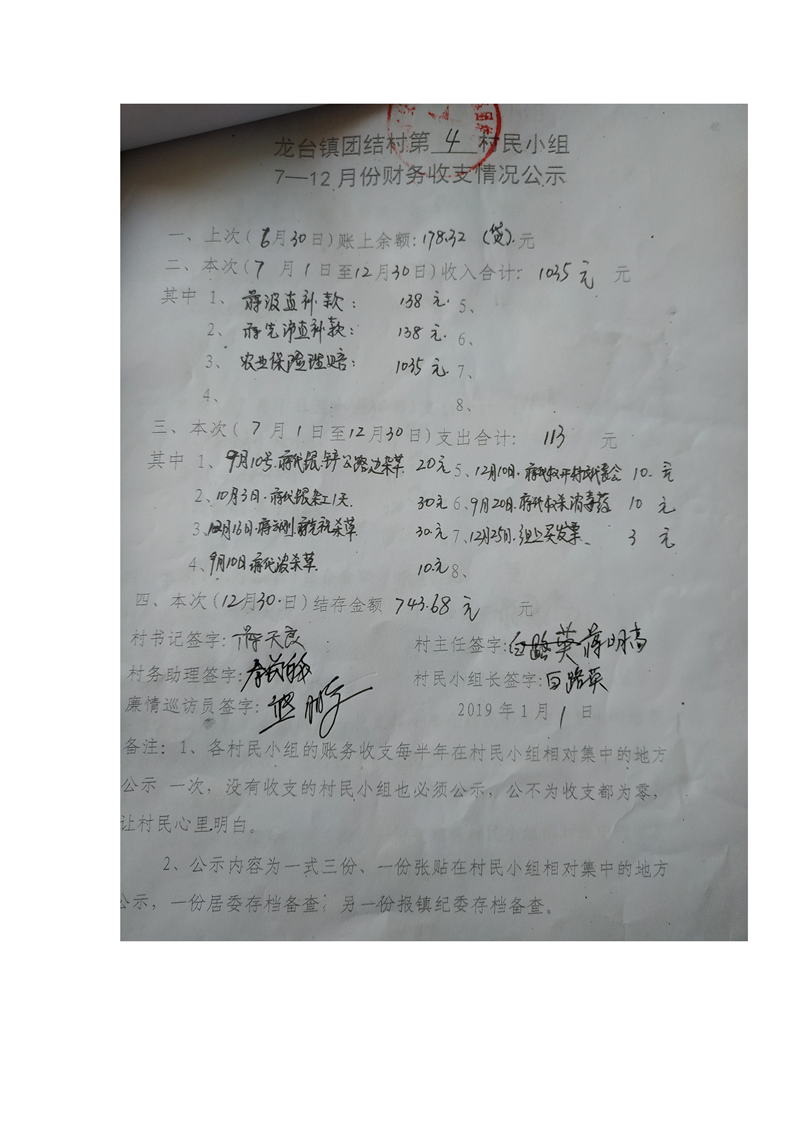 龙台镇团结村第 4 村民小组
7—12月份财务收支情况公示
一、上次(6月30日)账上余额:178.32 (贷).元
二、本次(7 月 1 日至12月30日)收入合计: 1035 元 元
其中 1、蒋波直补款: 138 元. 5、
2、蒋先沛直补款: 138 元. 6、
3、农业保险理赔: 1035 元. 7、
4、 8、
三、本次(7 月 1 日至12月30日)支出合计: 113 元
其中 1、9月10号.蒋代银.铲公路边杂草. 20元 5、12月10日.蒋代权开村民代表会 10. 元
2、10月3日.蒋代银杂工1天. 30元 6、9月20日.蒋代 消毒药 10 元
3、12月16日. 杀草 30.元 7、12月25日.组上买发票. 3 元
4、9月10日.蒋代波杀草. 10.元 8、
四、本次(12月30.日)结存金额 743.68 元 元
村书记签字:蒋天良 村主任签字: 蒋明高
村务助理签字: 村民小组长签字:白路英
廉情巡访员签字: 2019年1月1日
备注:1、各村民小组的账务收支每半年在村民小组相对集中的地方
公示 一次,没有收支的村民小组也必须公示,公不为收支都为零,
让村民心里明白。
2、公示内容为一式三份、一份张贴在村民小组相对集中的地方
公示,一份居委存档备查;另一份报镇纪委存档备查。